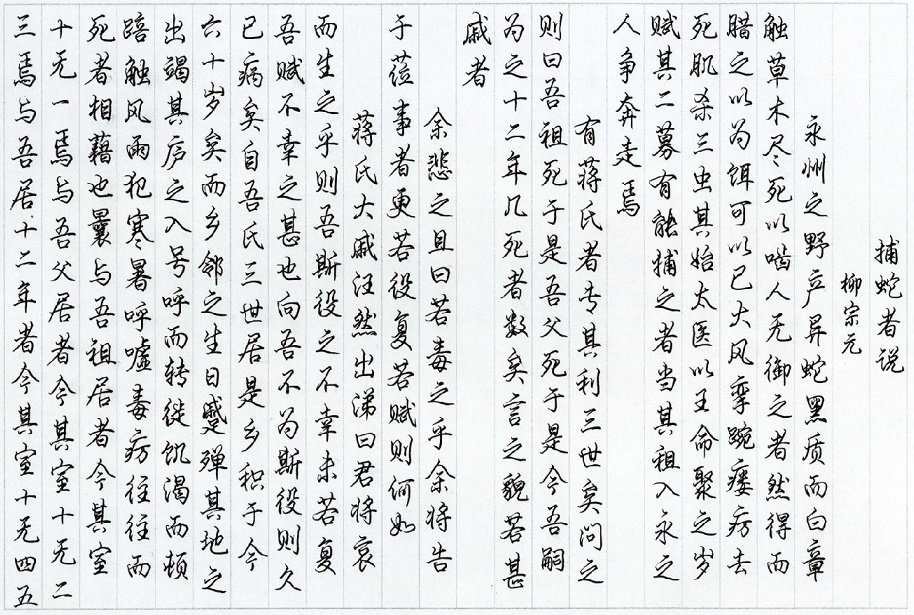 捕蛇者说
柳宗元
永州之野产异蛇黑质而白章
触草木尽死以啮人无御之者然得而
腊之以为饵可以已大风挛踠瘘疠去
死肌杀三虫其始太医以王命聚之岁
赋其二募有能捕之者当其租入永之
人争奔走焉
有蒋氏者专其利三世矣问之
则曰吾祖死于是吾父死于是今吾嗣
为之十二年几死者数矣言之貌若甚
戚者
余悲之且曰若毒之乎余将告
于莅事者更若役复若赋则何如
蒋氏大戚汪然出涕曰君将哀
而生之乎则吾斯役之不幸未若复
吾赋不幸之甚也向吾不为斯役则久
已病矣自吾氏三世居是乡积于今
六十岁矣而乡邻之生日蹙殚其地之
出竭其庐之入号呼而转徙饥渴而顿
踣触风雨犯寒暑呼嘘毒疠往往而
死者相藉也曩与吾祖居者今其室
十无一焉与吾父居者今其室十无二
三焉与吾居十二年者今其室十无四五